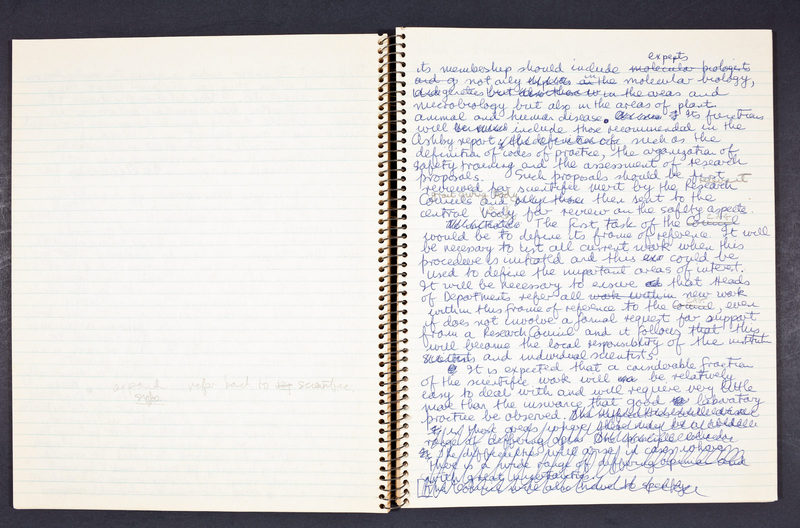 award refer back to scientific
experts
its membership should include molecular biologists
and not only in the molecular biology,
genetics but in the areas and
microbiology but also in the areas of plant
animal and human disease. Its functions
will include those recommended in the
Ashby report, such as the
definition of codes of practice, the organization of
safety training and the assessment of research
proposals. Such proposals should be first
reviewed for scientific merit by the Research
Councils and then sent to the
central body for review on the safety aspects.
The first task of the Council
would be to define its frame of reference. It will
be necessary to list all current work when this
procedure is initiated and this could be
used to define the important areas of interest.
It will be necessary to ensure that Heads
of Departments refer all work within new work
within this frame of reference to the Council, even
if does not involve a formal request for support
from a Research Council and it follows that this
will become the local responsibility of the institute
scientists and individual scientists
It is expected that a considerable fraction
of the scientific work will be relatively
easy to deal with and will require very little
more than the insurance that good laboratory
practice be observed.
in most areas where there may be a
range of differing
The difficulties will arise in cases where
there is a wide range of differing opinion and
with great uncertainties.
The Council will also have to